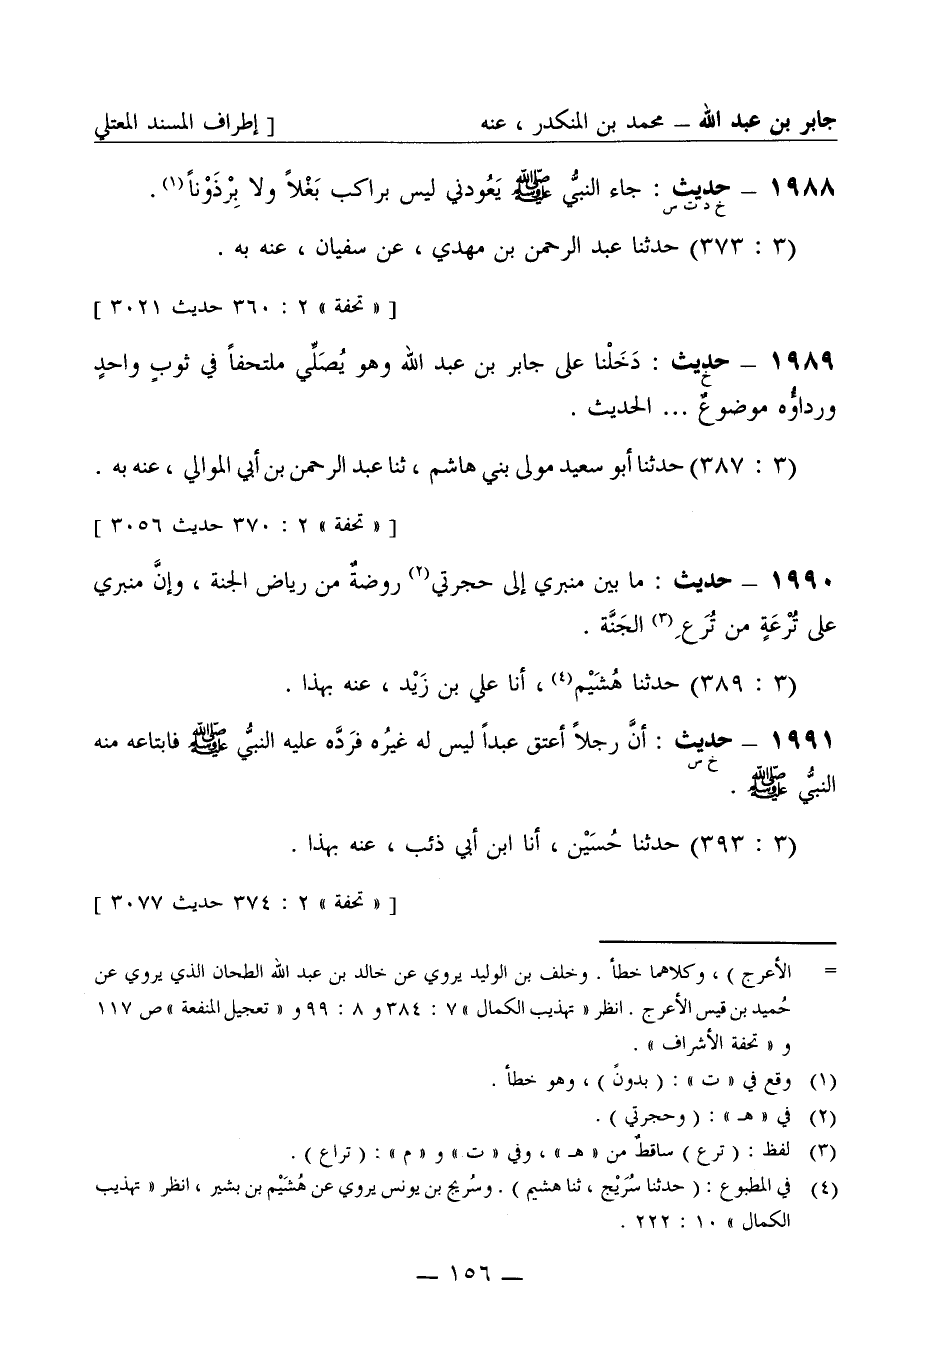 جابر بن عبد الله – محمد بن المنكدر ، عنه [ إطراف المسند المعتلي
١٩٨٨ – حديث : جاء النبيُّ ﷺ يَعُودني ليس براكب بَغْلاً ولا بِرْذَوْناً(١) .
خ د ت س
(٣ : ٣٧٣) حدثنا عبد الرحمن بن مهدي ، عن سفيان ، عنه به .
[ « تحفة » ٢ : ٣٦٠ حديث ٣٠٢١ ]
١٩٨٩ – حديث : دَخَلْنا على جابر بن عبد الله وهو يُصَلِّي ملتحفاً في ثوبٍ واحدٍ
خ
ورداؤُه موضوعٌ ... الحديث .
(٣ : ٣٨٧) حدثنا أبو سعيد مولى بني هاشم ، ثنا عبد الرحمن بن أبي الموالي ، عنه به .
[ « تحفة » ٢ : ٣٧٠ حديث ٣٠٥٦ ]
١٩٩٠ – حديث : ما بين منبري إلى حجرتي(٢) روضةٌ من رياض الجنة ، وإنَّ منبري
على تُرْعَةٍ من تُرَعِ(٣) الجَنَّة .
(٣ : ٣٨٩) حدثنا هُشَيْم(٤) ، أنا علي بن زَيْد ، عنه بهذا .
١٩٩١ – حديث : أنَّ رجلاً أعتق عبداً ليس له غيرُه فرَدَّه عليه النبيُّ ﷺ فابتاعه منه
خ س
النبيُّ ﷺ .
(٣ : ٣٩٣) حدثنا حُسَيْن ، أنا ابن أبي ذئب ، عنه بهذا .
[ « تحفة » ٢ : ٣٧٤ حديث ٣٠٧٧ ]
= الأعرج ) ، وكلاهما خطأ . وخلف بن الوليد يروي عن خالد بن عبد الله الطحان الذي يروي عن
حُميد بن قيس الأعرج . انظر « تهذيب الكمال » ٧ : ٣٨٤ و ٨ : ٩٩ و « تعجيل المنفعة » ص ١١٧
و « تحفة الأشراف » .
(١) وقع في « ت » : ( بدونً ) ، وهو خطأ .
(٢) في « هـ » : ( وحجرتي ) .
(٣) لفظ : ( ترع ) ساقطٌ من « هـ » ، وفي « ت » و « م » : ( تراع ) .
(٤) في المطبوع : ( حدثنا سُرَيْج ، ثنا هشيم ) . وسُريج بن يونس يروي عن هُشَيْم بن بشير ، انظر « تهذيب
الكمال » ١٠ : ٢٢٢ .
– ١٥٦ –